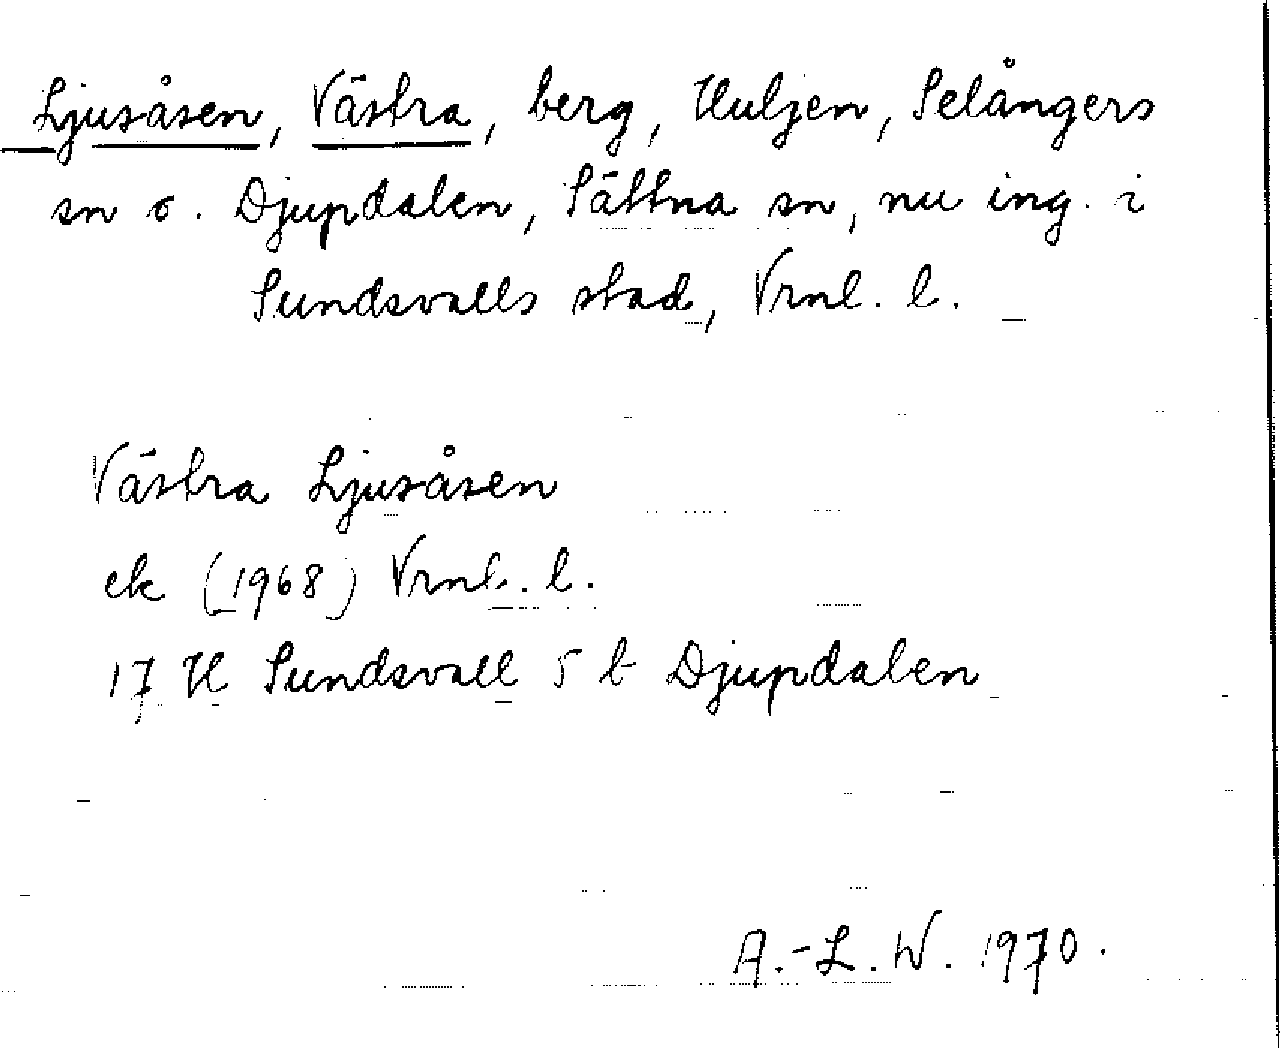 Ljusåsen, Västra, berg, Huljen, Selångers
sn o. Djupdalen, Sättna sn, nu ing. i
Sundsvalls stad, Vrnl. l.
Västra Ljusåsen
ek (1968) Vrnl. l.
17 H Sundsvall 5 b Djupdalen
A.-L. W. 1970.